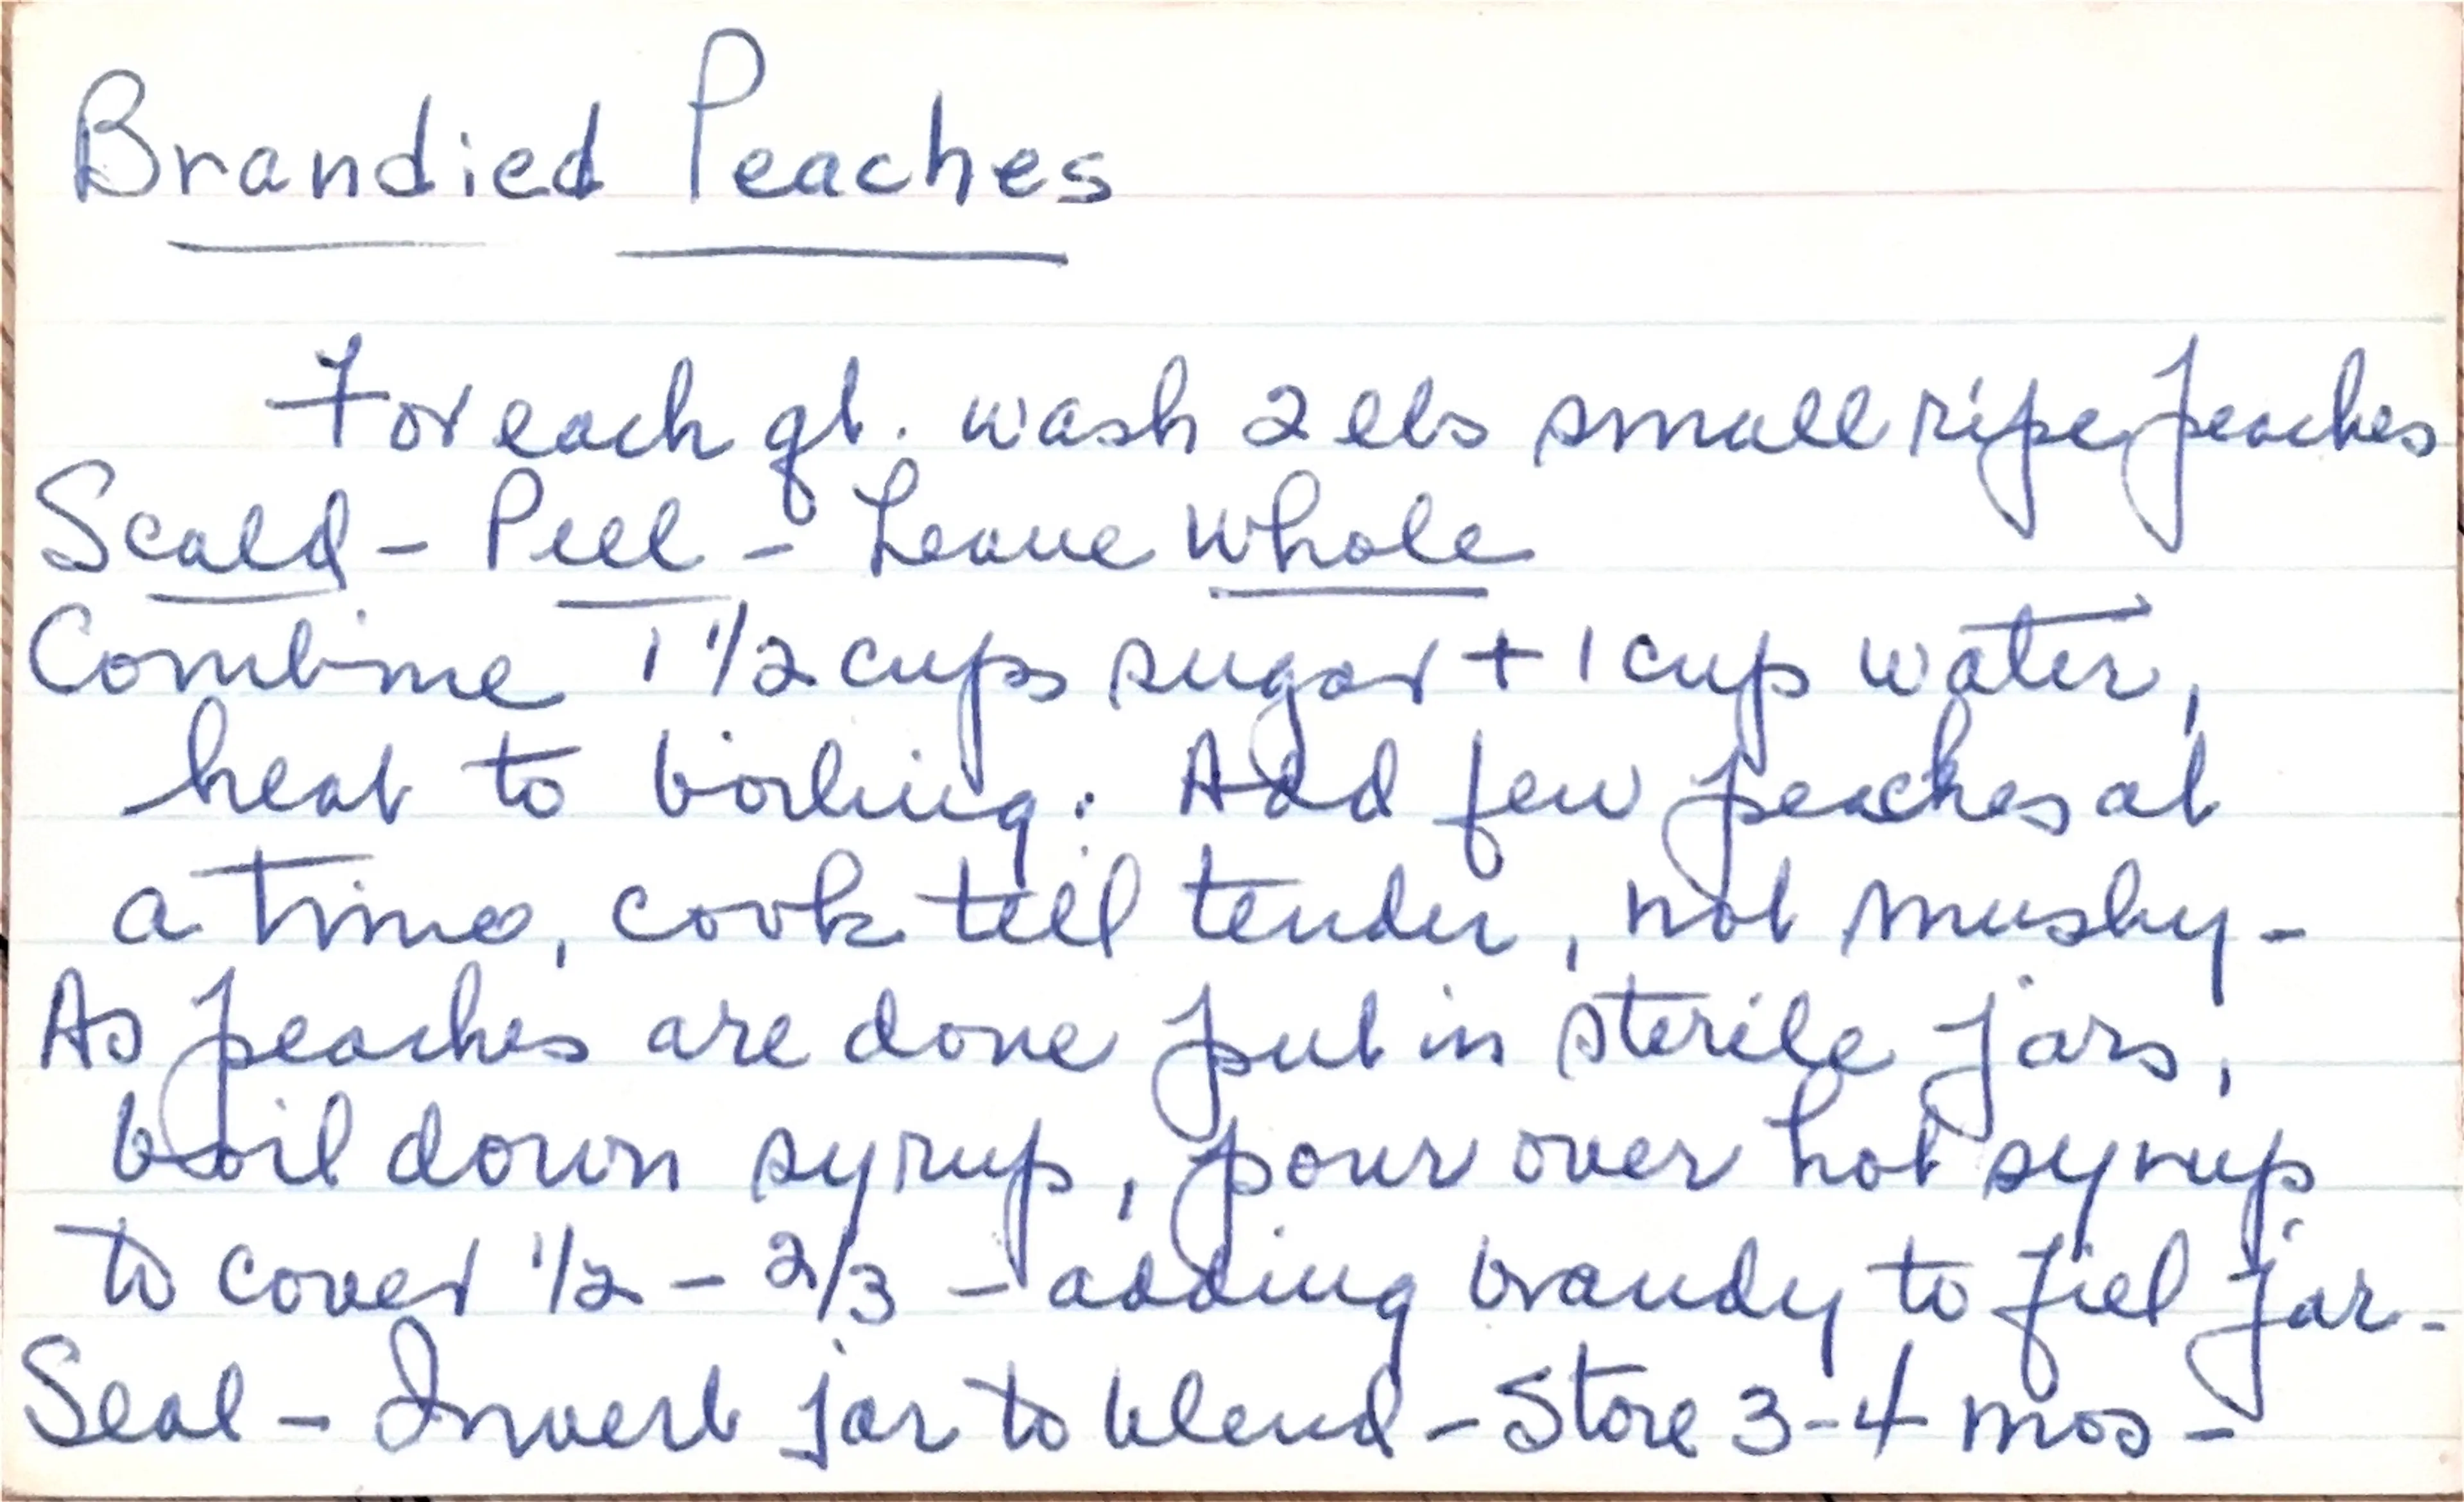 Brandied Peaches
For each qt. wash 2 lbs small ripe peaches
Scald - Peel - Leave whole
Combine 1 1/2 cups sugar + 1 cup water,
heat to boiling. Add few peaches at
a time, cook till tender, not mushy -
As peaches are done put in sterile jars,
boil down syrup, pour over hot syrup
to cover 1/2 - 2/3 - adding brandy to fill jar -
Seal - Invert jar to blend - Store 3-4 mos -